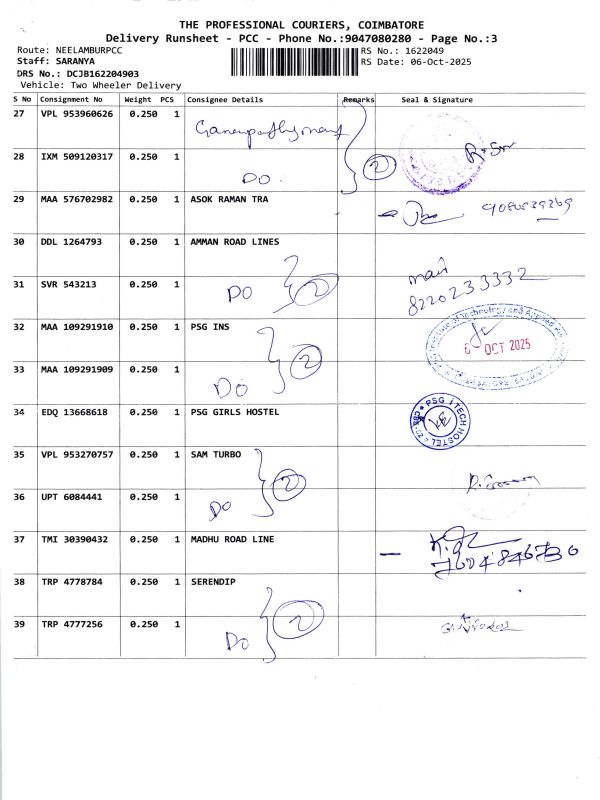 THE PROFESSIONAL COURIERS, COIMBATORE
Delivery Runsheet - PCC - Phone No.:9047080280 - Page No.:3
Route: NEELAMBURPCC
RS No.: 1622049
Staff: SARANYA
RS Date: 06-Oct-2025
DRS No.: DCJB162204903
Vehicle: Two Wheeler Delivery
S No Consignment No Weight PCS Consignee Details Remarks Seal & Signature
27 VPL 953960626 0.250 1
28 IXM 509120317 0.250 1 DO 2
29 MAA 576702982 0.250 1 ASOK RAMAN TRA
30 DDL 1264793 0.250 1 AMMAN ROAD LINES
31 SVR 543213 0.250 1 DO 2 8220233332
32 MAA 109291910 0.250 1 PSG INS
6 OCT 2025
33 MAA 109291909 0.250 1 DO 2
34 EDQ 13668618 0.250 1 PSG GIRLS HOSTEL PSG iTECH HOSTEL
35 VPL 953270757 0.250 1 SAM TURBO
36 UPT 6084441 0.250 1 DO 2
37 TMI 30390432 0.250 1 MADHU ROAD LINE
7604846730
38 TRP 4778784 0.250 1 SERENDIP
39 TRP 4777256 0.250 1 DO 2